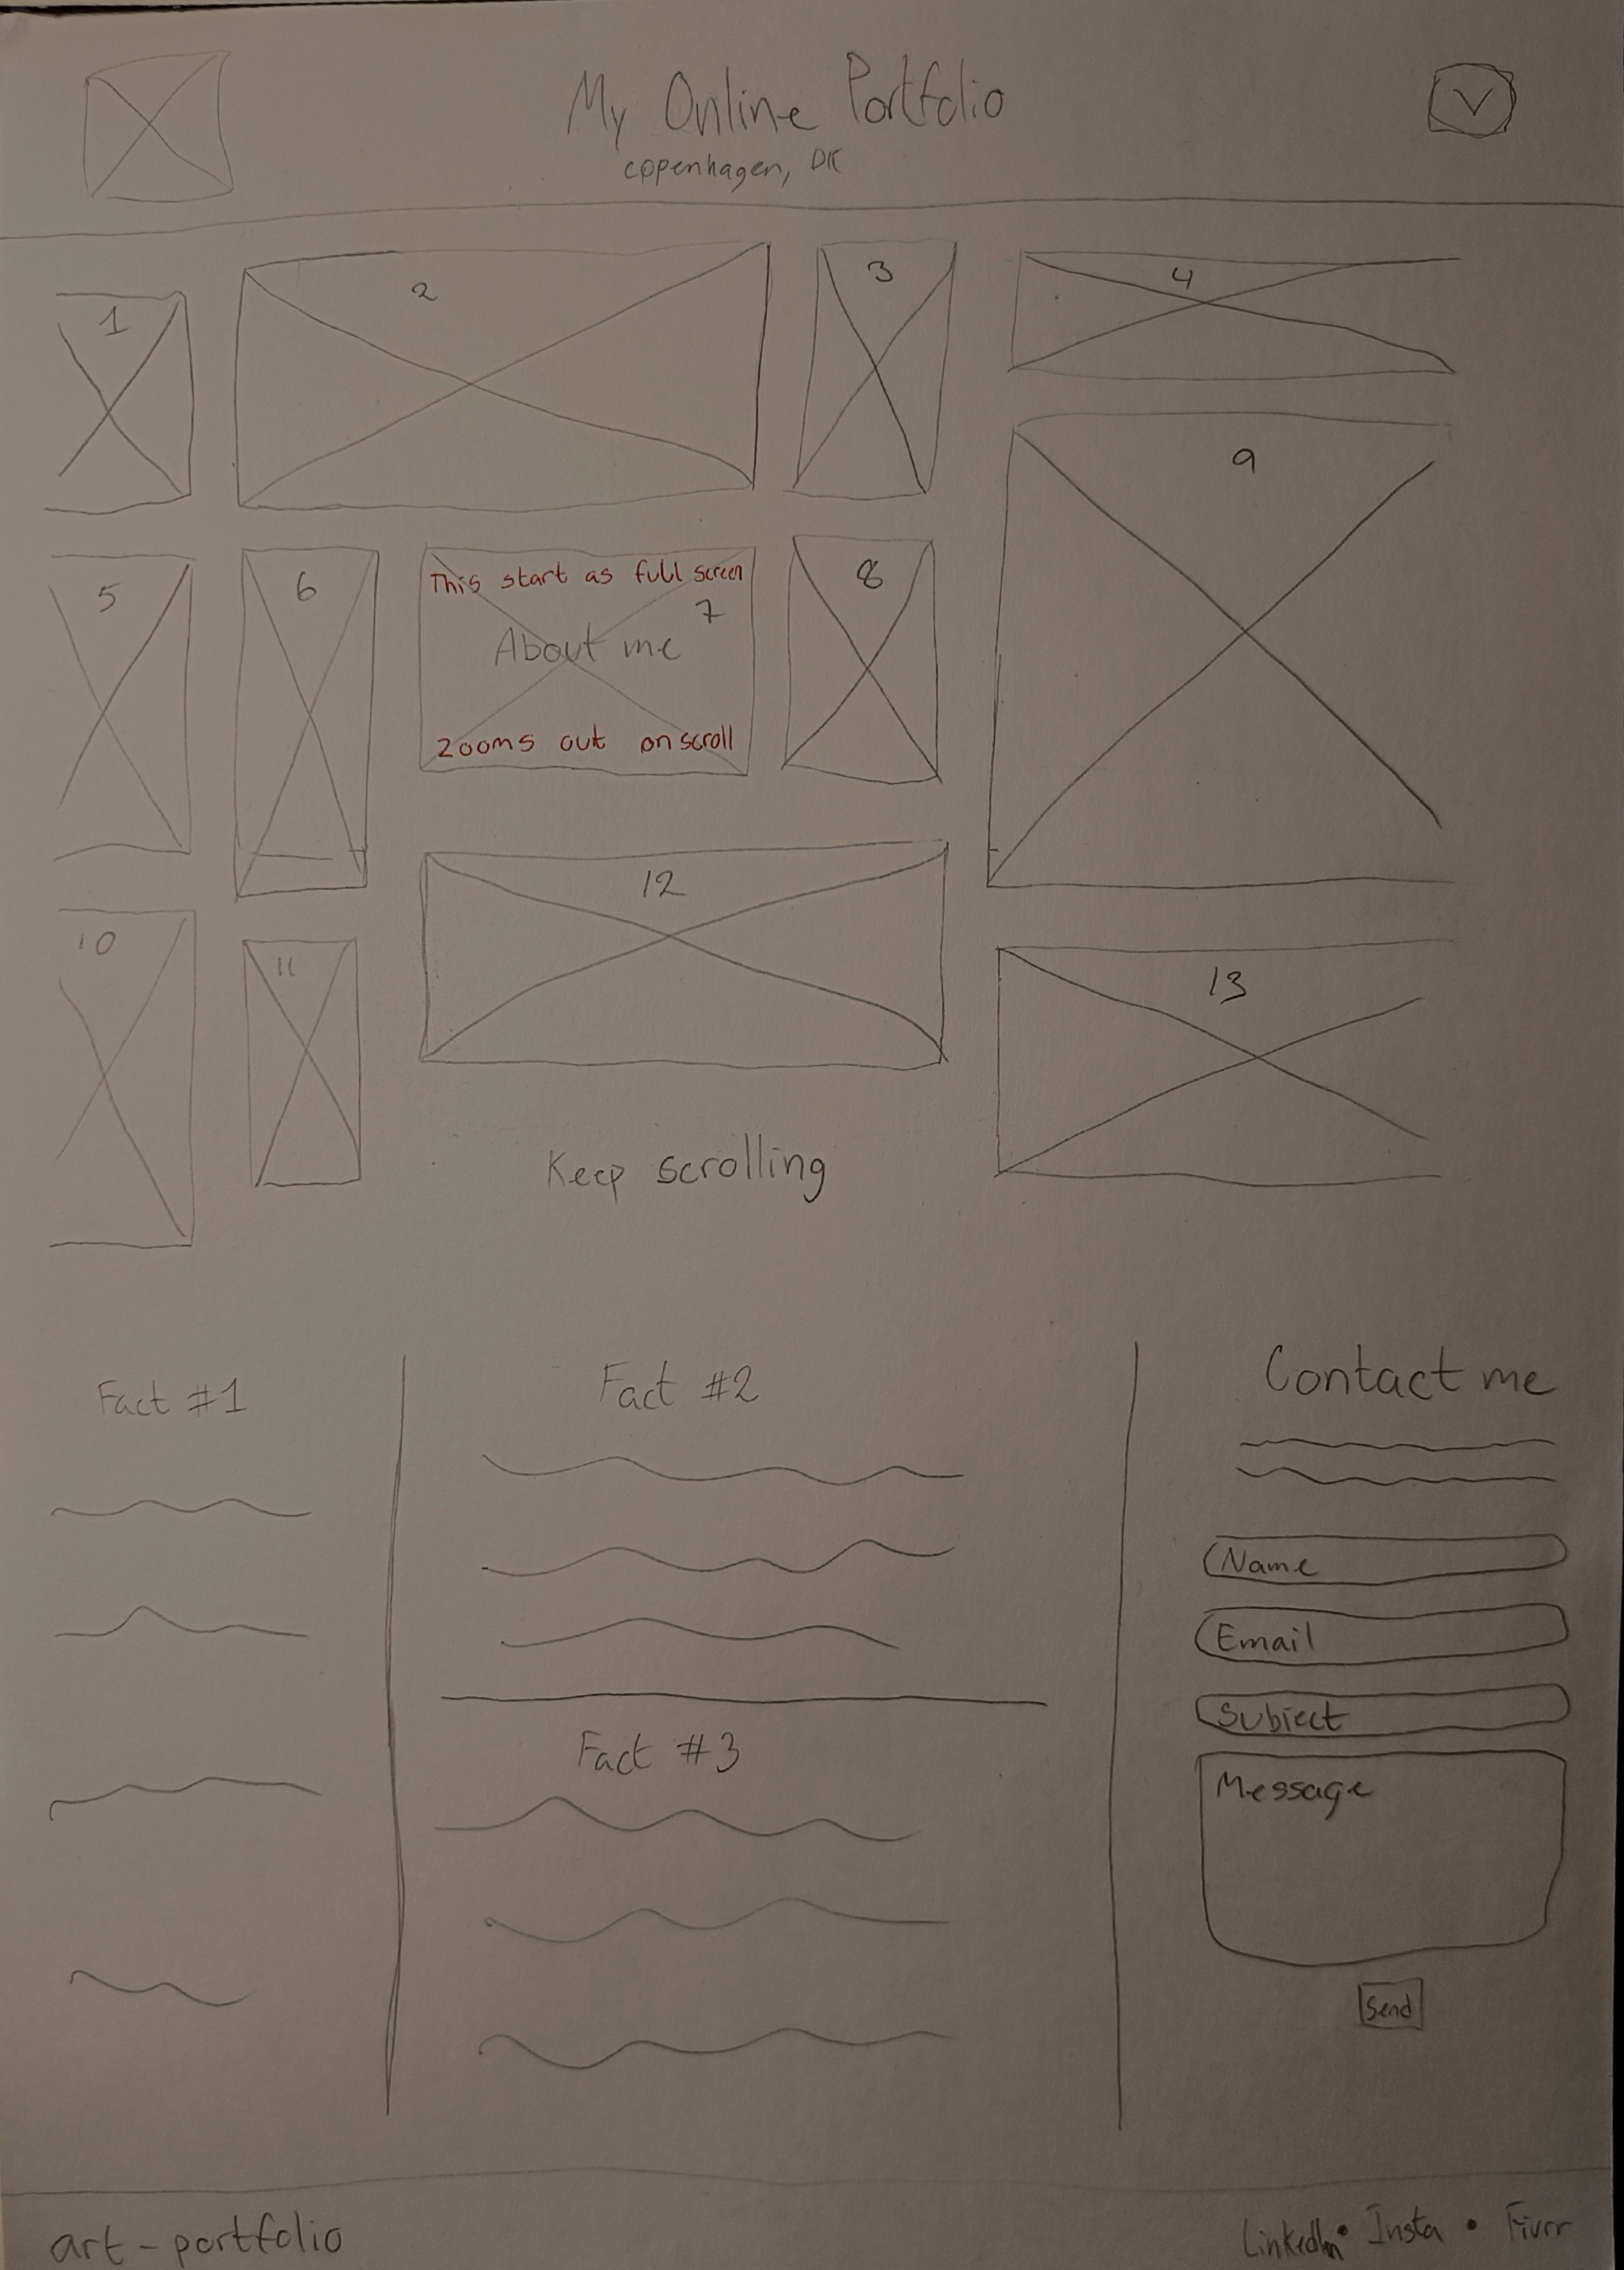 My Online Portfolio
copenhagen, DK
1
2
3
4
5
6
This start as full screen
7
About me
zooms out on scroll
8
9
10
11
12
13
Keep scrolling
Fact #1
Fact #2
Fact #3
Contact me
Name
Email
Subject
Message
Send
art-portfolio
LinkedIn • Insta • Fivrr